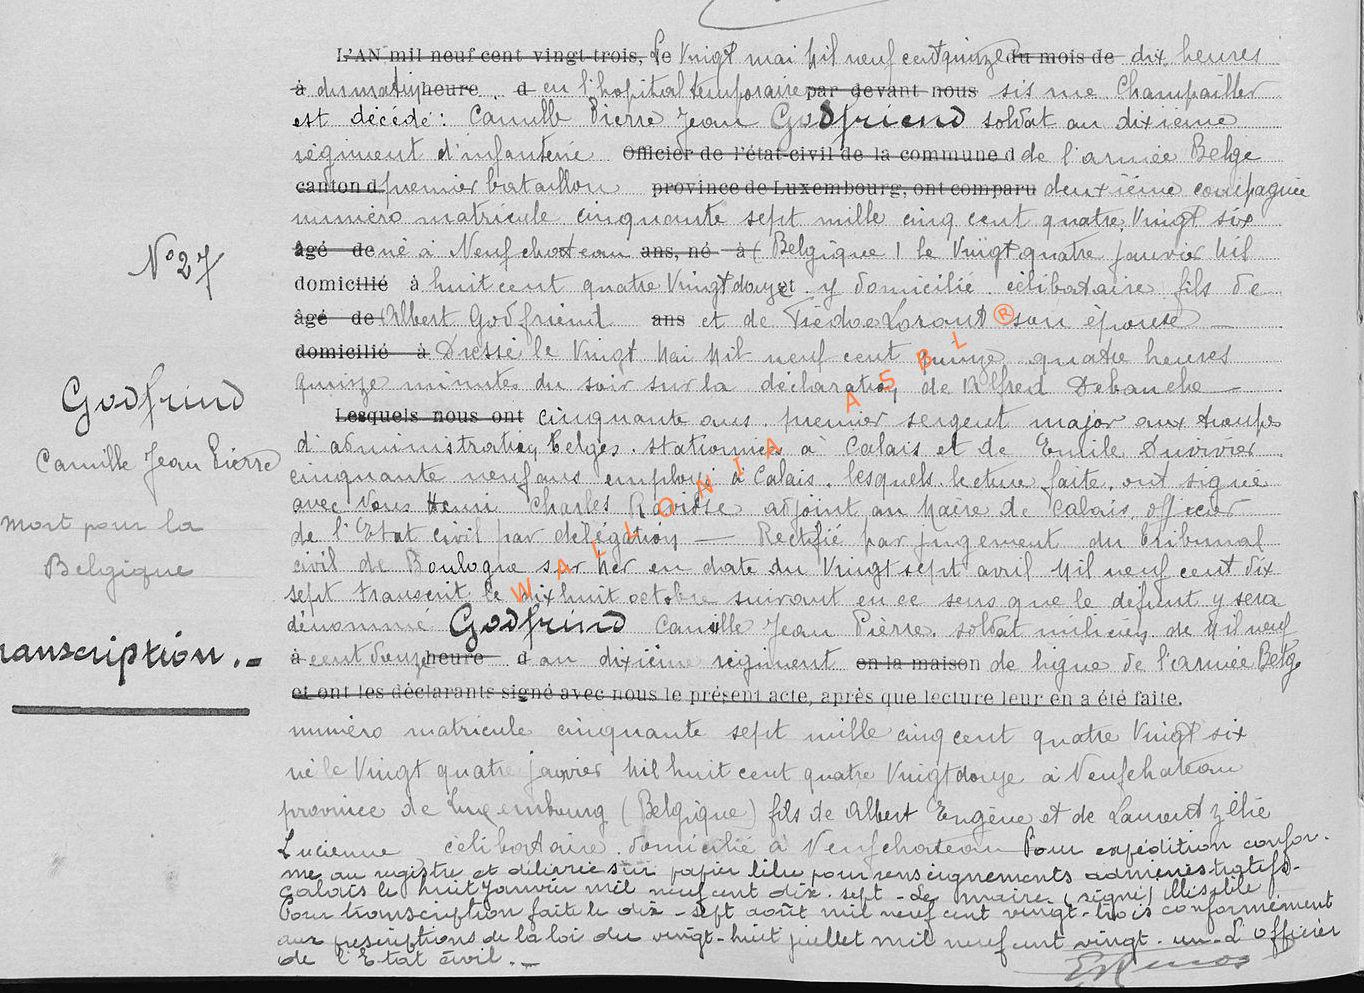 L'AN mil neuf cent vingt-trois, Le Vingt mai Mil neuf cent quinze du mois de dix heures
à du matin heure d en l'hopital temporaire par devant nous sis rue Champailler
est décédé: Camille Pierre Jean Godfriend soldat au dixième
régiment d'infanterie Officier de l'état-civil de la commune d de l'armée Belge
canton d premier bataillon province de Luxembourg, ont comparu deuxième compagnie
numéro matricule cinquante sept mille cinq cent quatre Vingt six
âgé de né à Neufchateau ans, né à (Belgique) le Vingt quatre janvier Mil
domicilié à huit cent quatre Vingt douze et y domicilié célibataire fils de
âgé de Albert Godfriend ans et de son épouse
domicilié à Dressé le Vingt Mai Mil neuf cent quinze quatre heures
quinze minutes du soir sur la déclaration de Alfred Debauche
Lesquels nous ont cinquante ans, premier sergent major aux troupes
d'administration belges stationnées à Calais et de Emile Duvivier
cinquante neuf ans employé à Calais, lesquels lecture faite ont signé
avec Nous Henri Charles Ravisse adjoint au Maire de Calais, officier
de l'Etat civil par délégation — Rectifié par jugement du tribunal
civil de Boulogne sur Mer en date du Vingt sept avril Mil neuf cent dix
sept transcrit le dix huit octobre suivant en ce sens que le défunt y sera
dénommé Godfrind Camille Jean Pierre, soldat milicien de Mil neuf
à cent douze heure d au dixième régiment en la maison de ligne de l'armée Belge
et ont les déclarants signé avec nous le présent acte, après que lecture leur en a été faite.
numéro matricule cinquante sept mille cinq cent quatre Vingt six
né le Vingt quatre janvier Mil huit cent quatre Vingt douze à Neufchateau
province de Luxembourg (Belgique) fils de Albert Eugène et de Laurent Zélie
Lucienne célibataire, domicilié à Neufchateau Pour expédition confor-
me au registre et délivrée sur papier libre pour renseignements administratifs.-
Calais le huit janvier mil neuf cent dix-sept - Le maire (signé) Illisible
Pour transcription faite le dix-sept août mil neuf cent vingt-trois conformément
aux prescriptions de la loi du vingt-huit juillet mil neuf cent vingt-un. L'officier
de l'Etat civil.-
N° 27
Godfrind
Camille Jean Pierre
mort pour la
Belgique
ranscription.-
WALLONIA ASBL ®